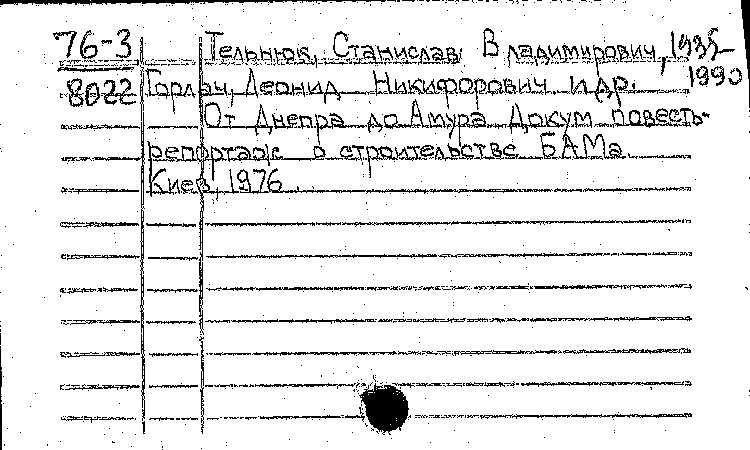 76-3 Тельнюк, Станислав Владимирович, 1935-
8022 Горлач, Леонид Никифорович и др. 1990
От Днепра до Амура Докум повесть-
репортаж о строительстве БАМа.
Киев, 1976.